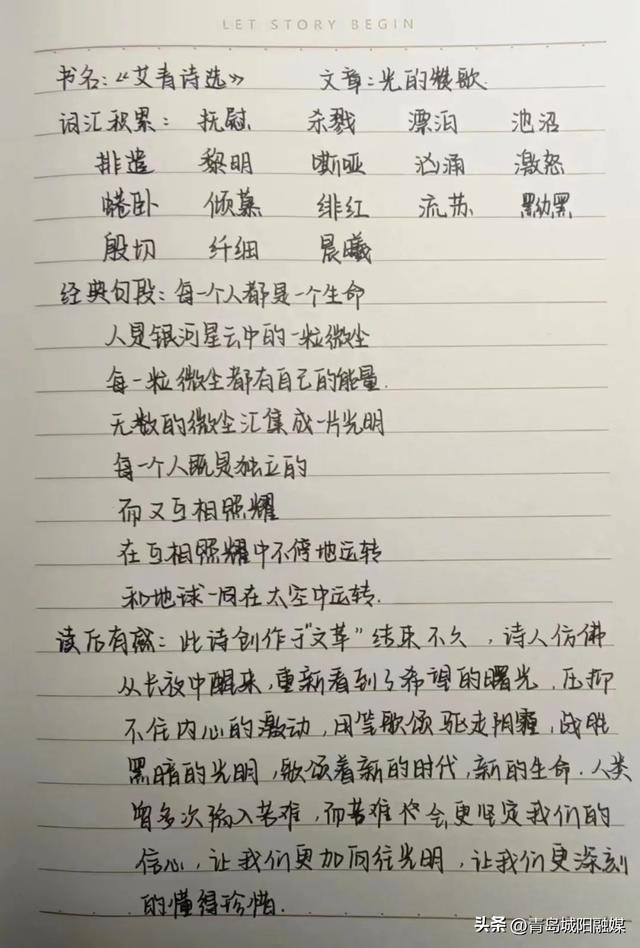 LET STORY BEGIN
书名:《艾青诗选》 文章:光的赞歌.
词汇积累: 抚慰 杀戮 漂泊 池沼
排遣 黎明 嘶哑 汹涌 激怒
蜷卧 倾慕 绯红 流苏 黝黑
殷切 纤细 晨曦
经典句段:每一个人都是一个生命
人是银河星云中的一粒微尘
每一粒微尘都有自己的能量.
无数的微尘汇集成一片光明
每一个人既是独立的
而又互相照耀
在互相照耀中不停地运转
和地球一同在太空中运转.
读后有感:此诗创作于"文革"结束不久,诗人仿佛
从长夜中醒来,重新看到了希望的曙光,压抑
不住内心的激动,用笔歌颂驱走阴霾,战胜
黑暗的光明,歌颂着新的时代,新的生命.人类
曾多次陷入苦难,而苦难也会更坚定我们的
信心,让我们更加向往光明,让我们更深刻
的懂得珍惜.
头条@青岛城阳融媒